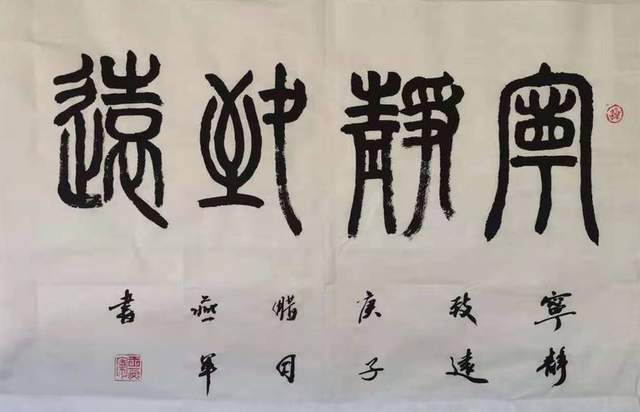 寧靜致遠
寧靜
致遠
庚子
腊月
燕军
書